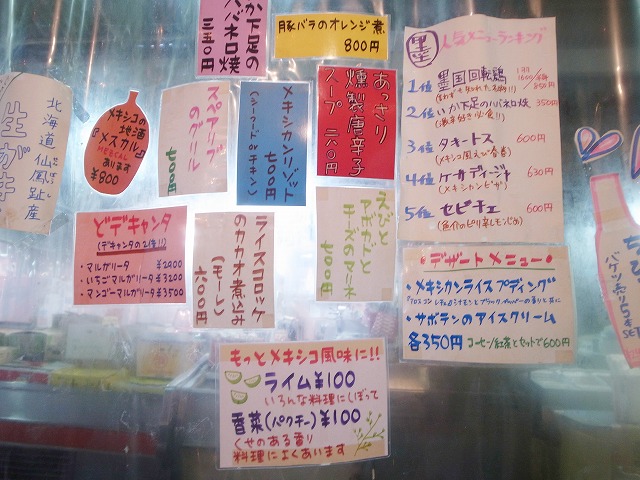 か下足の
ハバネロ焼
三五〇円
豚バラのオレンジ煮
800円
北海道仙鳳趾産
生がキ
メキシコの
地酒
『メスカル』
MEZCAL
あります
¥800
スペアリブ
のグリル
七〇〇円
メキシカンリゾット
(シーフードorチキン)
七〇〇円
あっさり
燻製唐辛子
スープ 二六〇円
墨国
人気メニューランキング
1位 墨国回転鶏
1羽
1600/半羽
850円
2位 いか下足のハバネロ焼 350円
(激辛好き必食!!)
3位 タキートス 600円
(メキシコ風えび春巻)
4位 ケサディージャ 630円
(メキシカンピザ)
5位 セビチェ 600円
(魚介のピリ辛レモンじめ)
どデキャンタ
(デキャンタの2倍!!)
・マルガリータ ¥2900
・いちごマルガリータ ¥3200
・マンゴーマルガリータ ¥3500
ライスコロッケ
のカカオ煮込み
(モーレ)
六〇〇円
えびと
アボガドと
チーズのマリネ
・デザートメニュー・
・メキシカンライスプディング
・サボテンのアイスクリーム
各350円 コーヒー/紅茶とセットで600円
もっとメキシコ風味に!!
ライム¥100
いろんな料理にしぼって
香菜(パクチー)¥100
くせのある香り
料理によくあいます